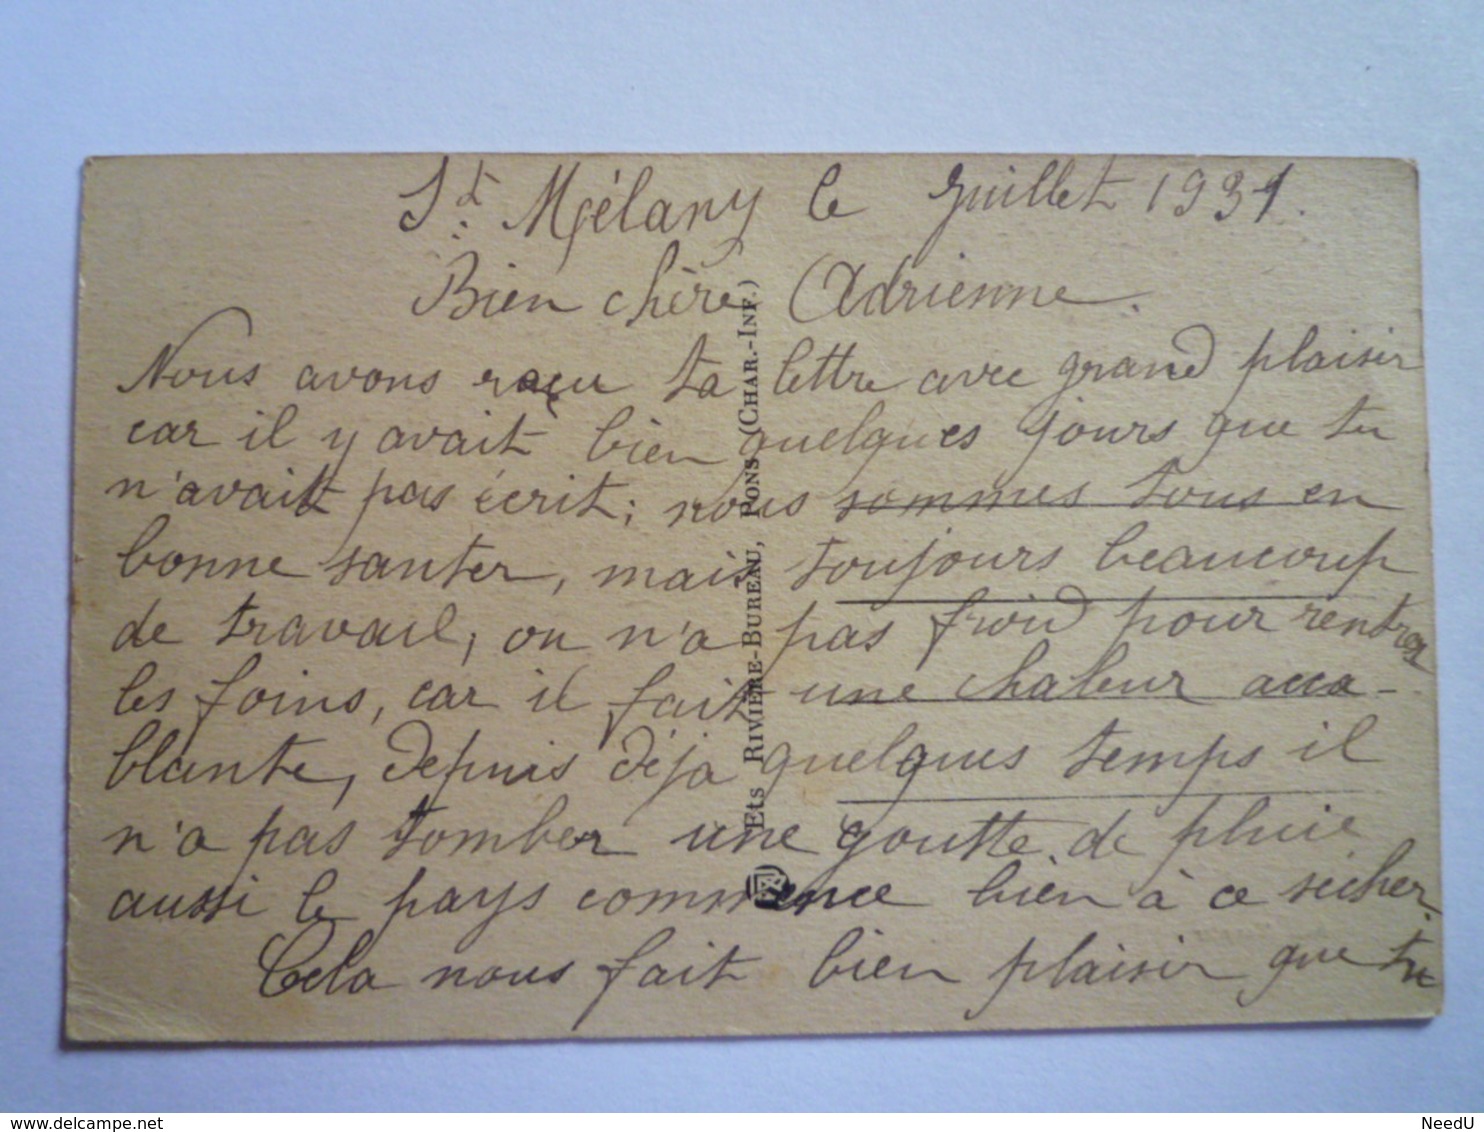 St Mélany le juillet 1931.
Bien chère Adrienne.
Nous avons raçu ta lettre avec grand plaisir
car il y avait bien quelques jours que tu
n'avait pas écrit; nous sommes tous en
bonne santer, mais toujours beaucoup
de travail, on n'a pas froid pour rentrer
les foins, car il fait une chaleur acca-
blante, depuis déja quelques temps il
n'a pas tomber une goutte de pluie
aussi le pays commence bien à ce sécher.
Cela nous fait bien plaisir que tu
Ets RIVIÈRE-BUREAU, PONS (CHAR.-INF.)
delcampe.net
NeedU